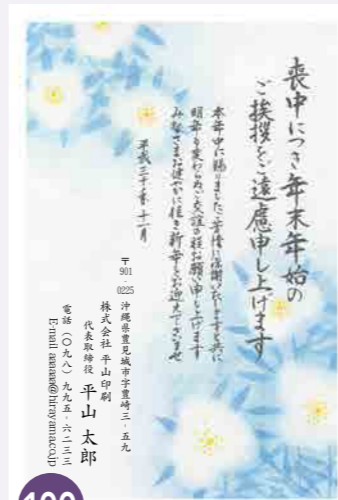 喪中につき年末年始の
ご挨拶をご遠慮申し上げます
本年中に賜りましたご芳情に深謝いたしますと共に
明年も変わらぬご交誼の程お願い申し上げます
みなさまお健やかに佳き新年をお迎え下さいませ
平成三十年十一月
〒901
0225
沖縄県豊見城市字豊崎三‐五九
株式会社 平山印刷
代表取締役 平山 太郎
電話(〇九八)九九五‐六二三三
E-mail aaaaaa@hirayama.co.jp